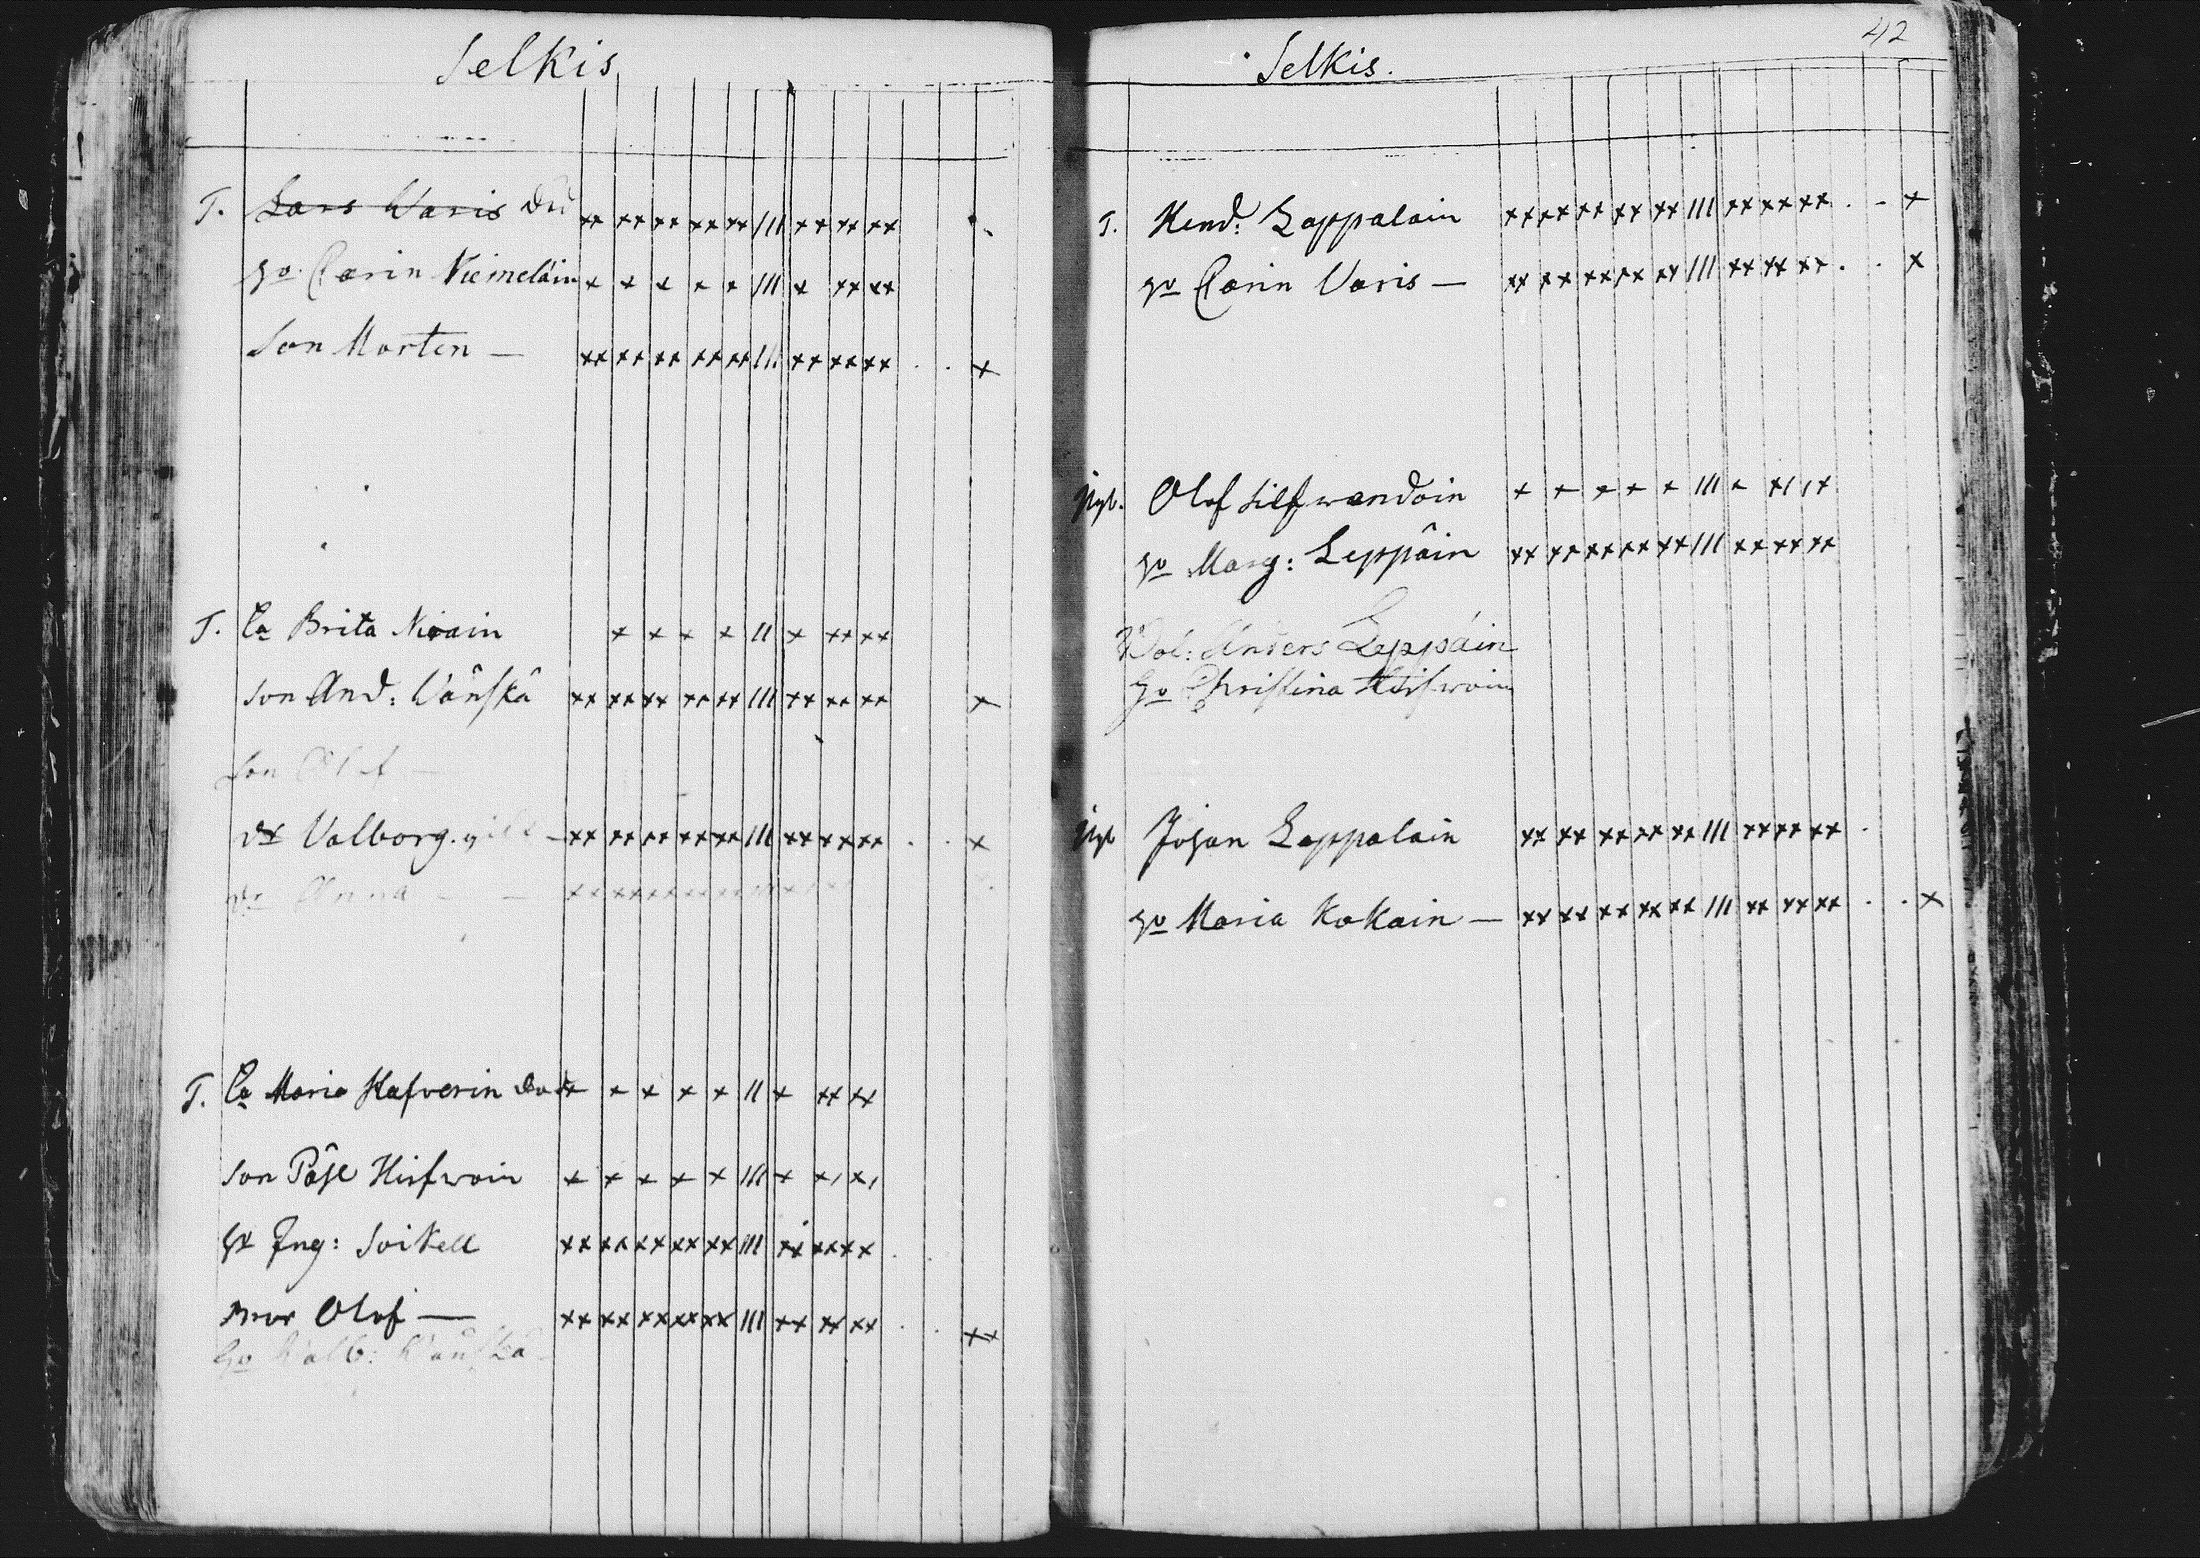 Selkis
T. Lars Varis Dn xx xx xx xx xx III xx xx xx
Hu. Carin Niemeläin x x x x x III x xx xx
Son Morten — xx xx xx xx xx III xx xx xx . . x
T. Ea Brita Nirain x x x x II x xx xx
Son And: Vänskä xx xx xx xx xx III xx xx xx x
Son Olof —
Dr Valborg. — xx xx xx xx xx III xx xx xx . . x
Dr Anna — —
T. Ea Maria Hafverin x x x x II x xx xx
Son Påhl Hirfwoin x x x x x III x x, x,
Hu Ing: Soikell xx xx xx xx xx III xx xx xx . .
Bror Olof — xx xx xx xx xx III xx xx xx . . xx
Hu Valb: Vänskä
42
Selkis.
T. Hend: Lappalain xx xx xx xx xx III xx xx xx . . x
Hu Carin Varis — xx xx xx xx xx III xx xx xx . . x
Olof Silfwendoin x x x x x III x
Hu Marg: Leppäin xx xx xx xx xx III xx xx xx
Anders Leppäin
Hu Christina Hirfwoin
Johan Lappalain xx xx xx xx xx III xx xx xx .
Hu Maria Kokain — xx xx xx xx xx III xx xx xx . . x